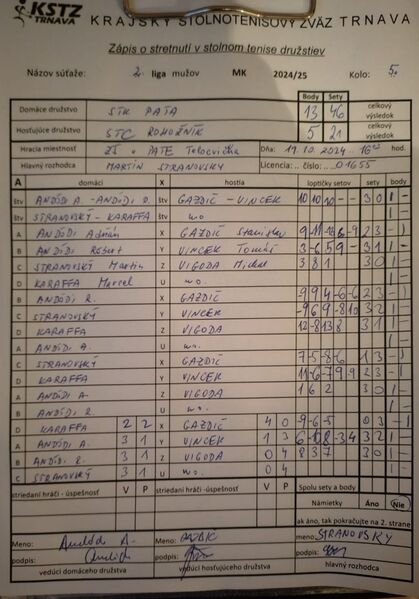 KSTZ TRNAVA KRAJSKÝ STOLNOTENISOVÝ ZVÄZ TRNAVA
Zápis o stretnutí v stolnom tenise družstiev
Názov súťaže: 2. liga mužov MK 2024/25 Kolo: 5.
Body Sety
Domáce družstvo STK PAŤA 13 46 celkový výsledok
Hosťujúce družstvo STC ROHOŽNÍK 5 21 celkový výsledok
Hracia miestnosť ZŠ PATE Telocvičňa Dňa: 19.10.2024 16 hod.
Hlavný rozhodca MARTIN STRANOVSKÝ Licencia: číslo: 01655
A domáci X hostia loptičky setov sety body
štv ANDÓDI A. - ANDÓDI R. štv GAZDIČ - VINCEK 10 10 10 - - 3 0 1 -
štv STRANOVSKÝ - KARAFFA štv w.o. 1 -
A ANDÓDI Adrián X GAZDIČ Stanislav 2 3 - 1
B ANDÓDI Róbert Y VINCEK Tomáš 3 1 1 -
C STRANOVSKÝ Martin Z VIGODA Michal 3 8 1 3 0 1 -
D KARAFFA Marcel U w.o. 1 -
B ANDÓDI R. X GAZDIČ -9 9 4 -6 -6 2 3 - 1
C STRANOVSKÝ Y VINCEK -9 6 9 -8 10 3 2 1 -
D KARAFFA Z VIGODA 12 -8 13 8 3 1 1 -
A ANDÓDI A. U w.o. 1 -
C STRANOVSKÝ X GAZDIČ 1 3 - 1
D KARAFFA Y VINCEK 2 3 - 1
A ANDÓDI A. Z VIGODA 1 6 2 3 0 1 -
B ANDÓDI R. U w.o. 1 -
D KARAFFA 2 2 X GAZDIČ 4 0 -9 -6 -5 0 3 - 1
A ANDÓDI A. 3 1 Y VINCEK 1 3 3 2 1 -
B ANDÓDI R. 3 1 Z VIGODA 0 4 8 3 7 3 0 1 -
C STRANOVSKÝ 3 1 U w.o. 0 4
striedaní hráči - úspešnosť V P striedaní hráči - úspešnosť V P Spolu sety a body
Námietky Áno Nie
ak áno, tak pokračujte na 2. strane
Meno: Andódi A. Meno: GAZDIČ meno: STRANOVSKÝ
podpis: podpis: podpis:
vedúci domáceho družstva vedúci hosťujúceho družstva hlavný rozhodca